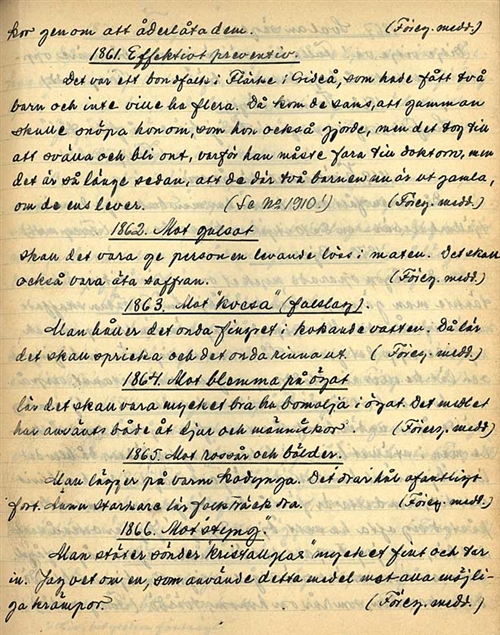 kor genom att åderlåta dem. (Föreg. medd.)
1861. Effektivt preventiv.
Det var ett bondfolk i Flärke i Gideå, som hade fått två
barn och inte ville ha flera. Då kom de sams, att gumman
skulle snöpa honom, som hon också gjorde, men det tog till
att svälla och bli ont, varför han måste fara till doktorn, men
det är så länge sedan, att de där två barnen nu är ut gamla,
om de ens lever. (Se nr 1910!) (Föreg. medd.)
1862. Mot gulsot
skall det vara ge personen levande löss i maten. Det skall
också vara äta saffran. (Föreg. medd.)
1863. Mot "kvesa" (falslag).
Man håller det onda fingret i kokande vatten. Då lär
det skall spricka och det onda rinna ut. (Föreg. medd.)
1864. Mot blemma på ögat
lär det skall vara mycket bra ha bomolja i ögat. Det medlet
har använts både åt djur och människor. (Föreg. medd)
1865. Mot rossår och bölder.
Man lägger på varm kodynga. Det drar hål ofantligt
fort. Ännu starkare lär folkträck dra. (Föreg. medd.)
1866. Mot styng
Man stöter sönder "kristallglas" mycket fint och tar
in. Jag vet om en, som använde detta medel mot alla möjli-
ga krämpor. (Föreg. medd.)